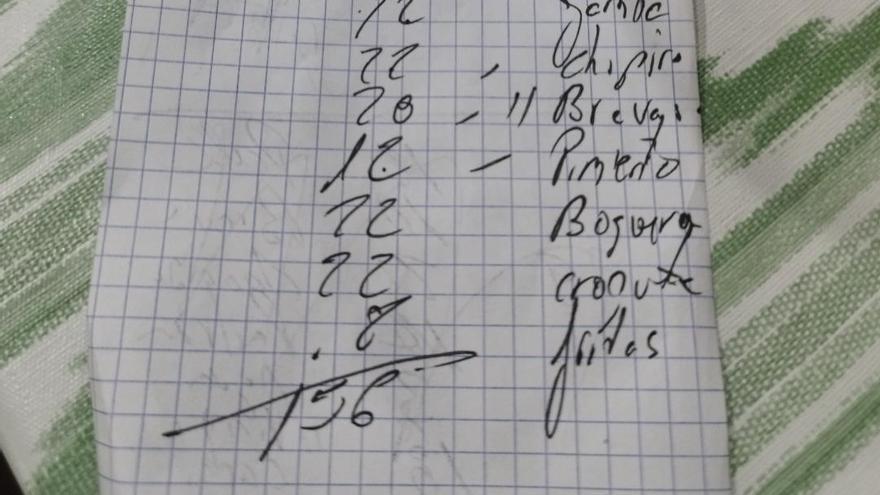 12
22 - chipiro
20 - " Bravas
12 - Pimento
22 Boquero
22 croquete
8 fritas
156